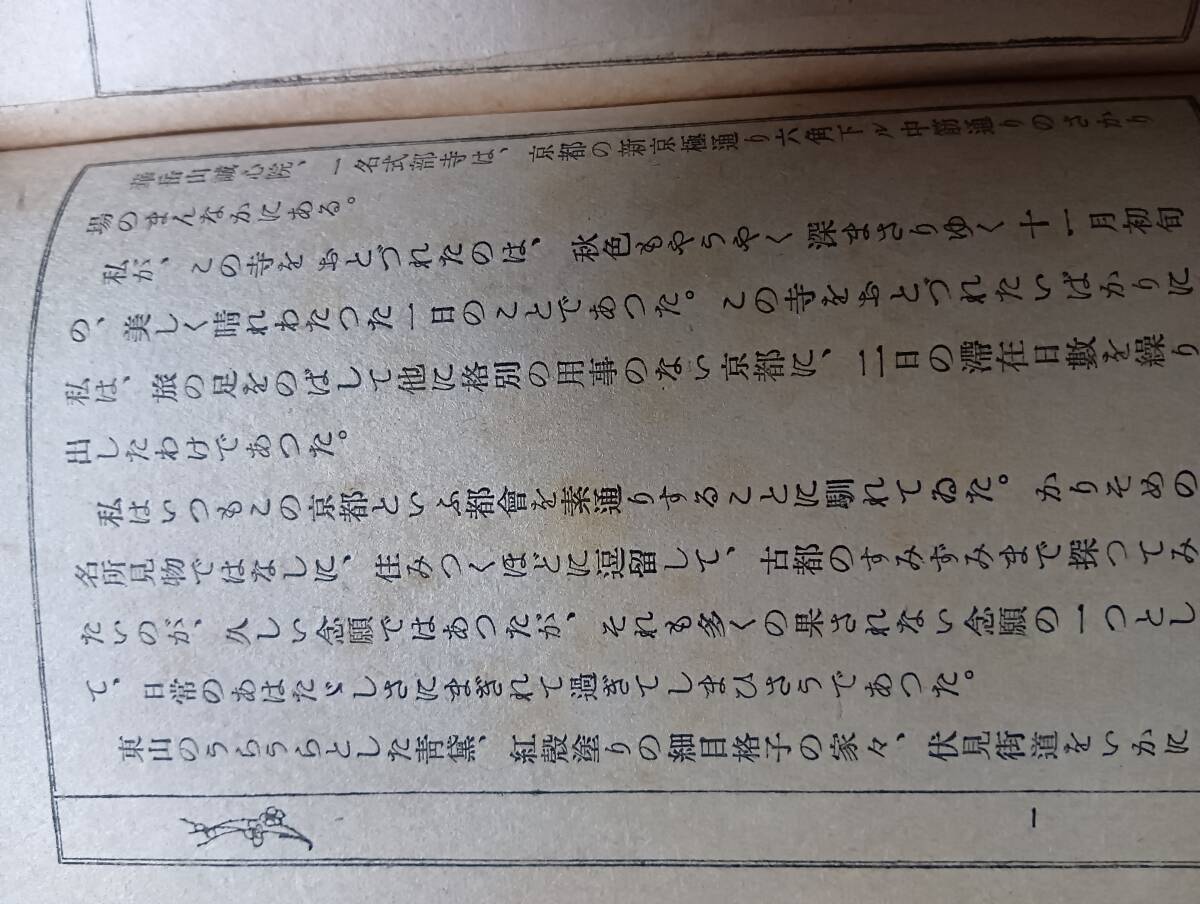 華岳山誠心院、一名式部寺は、京都の新京極通り六角下ル中筋通りのさかり
場のまんなかにある。
私が、この寺をおとづれたのは、秋色もやうやく深まさりゆく十一月初旬
の、美しく晴れわたつた一日のことであつた。この寺をおとづれたいばかりに
私は、旅の足をのばして他に格別の用事のない京都に、二日の滯在日數を繰り
出したわけであつた。
私はいつもこの京都といふ都會を素通りすることに馴れてゐた。かりそめの
名所見物ではなしに、住みつくほどに逗留して、古都のすみずみまで探つてみ
たいのが、久しい念願ではあつたが、それも多くの果されない念願の一つとし
て、日常のあはたゞしさにまぎれて過ぎてしまひさうであつた。
東山のうらうらとした靑黛、紅殼塗りの細目格子の家々、伏見街道をいかに
一